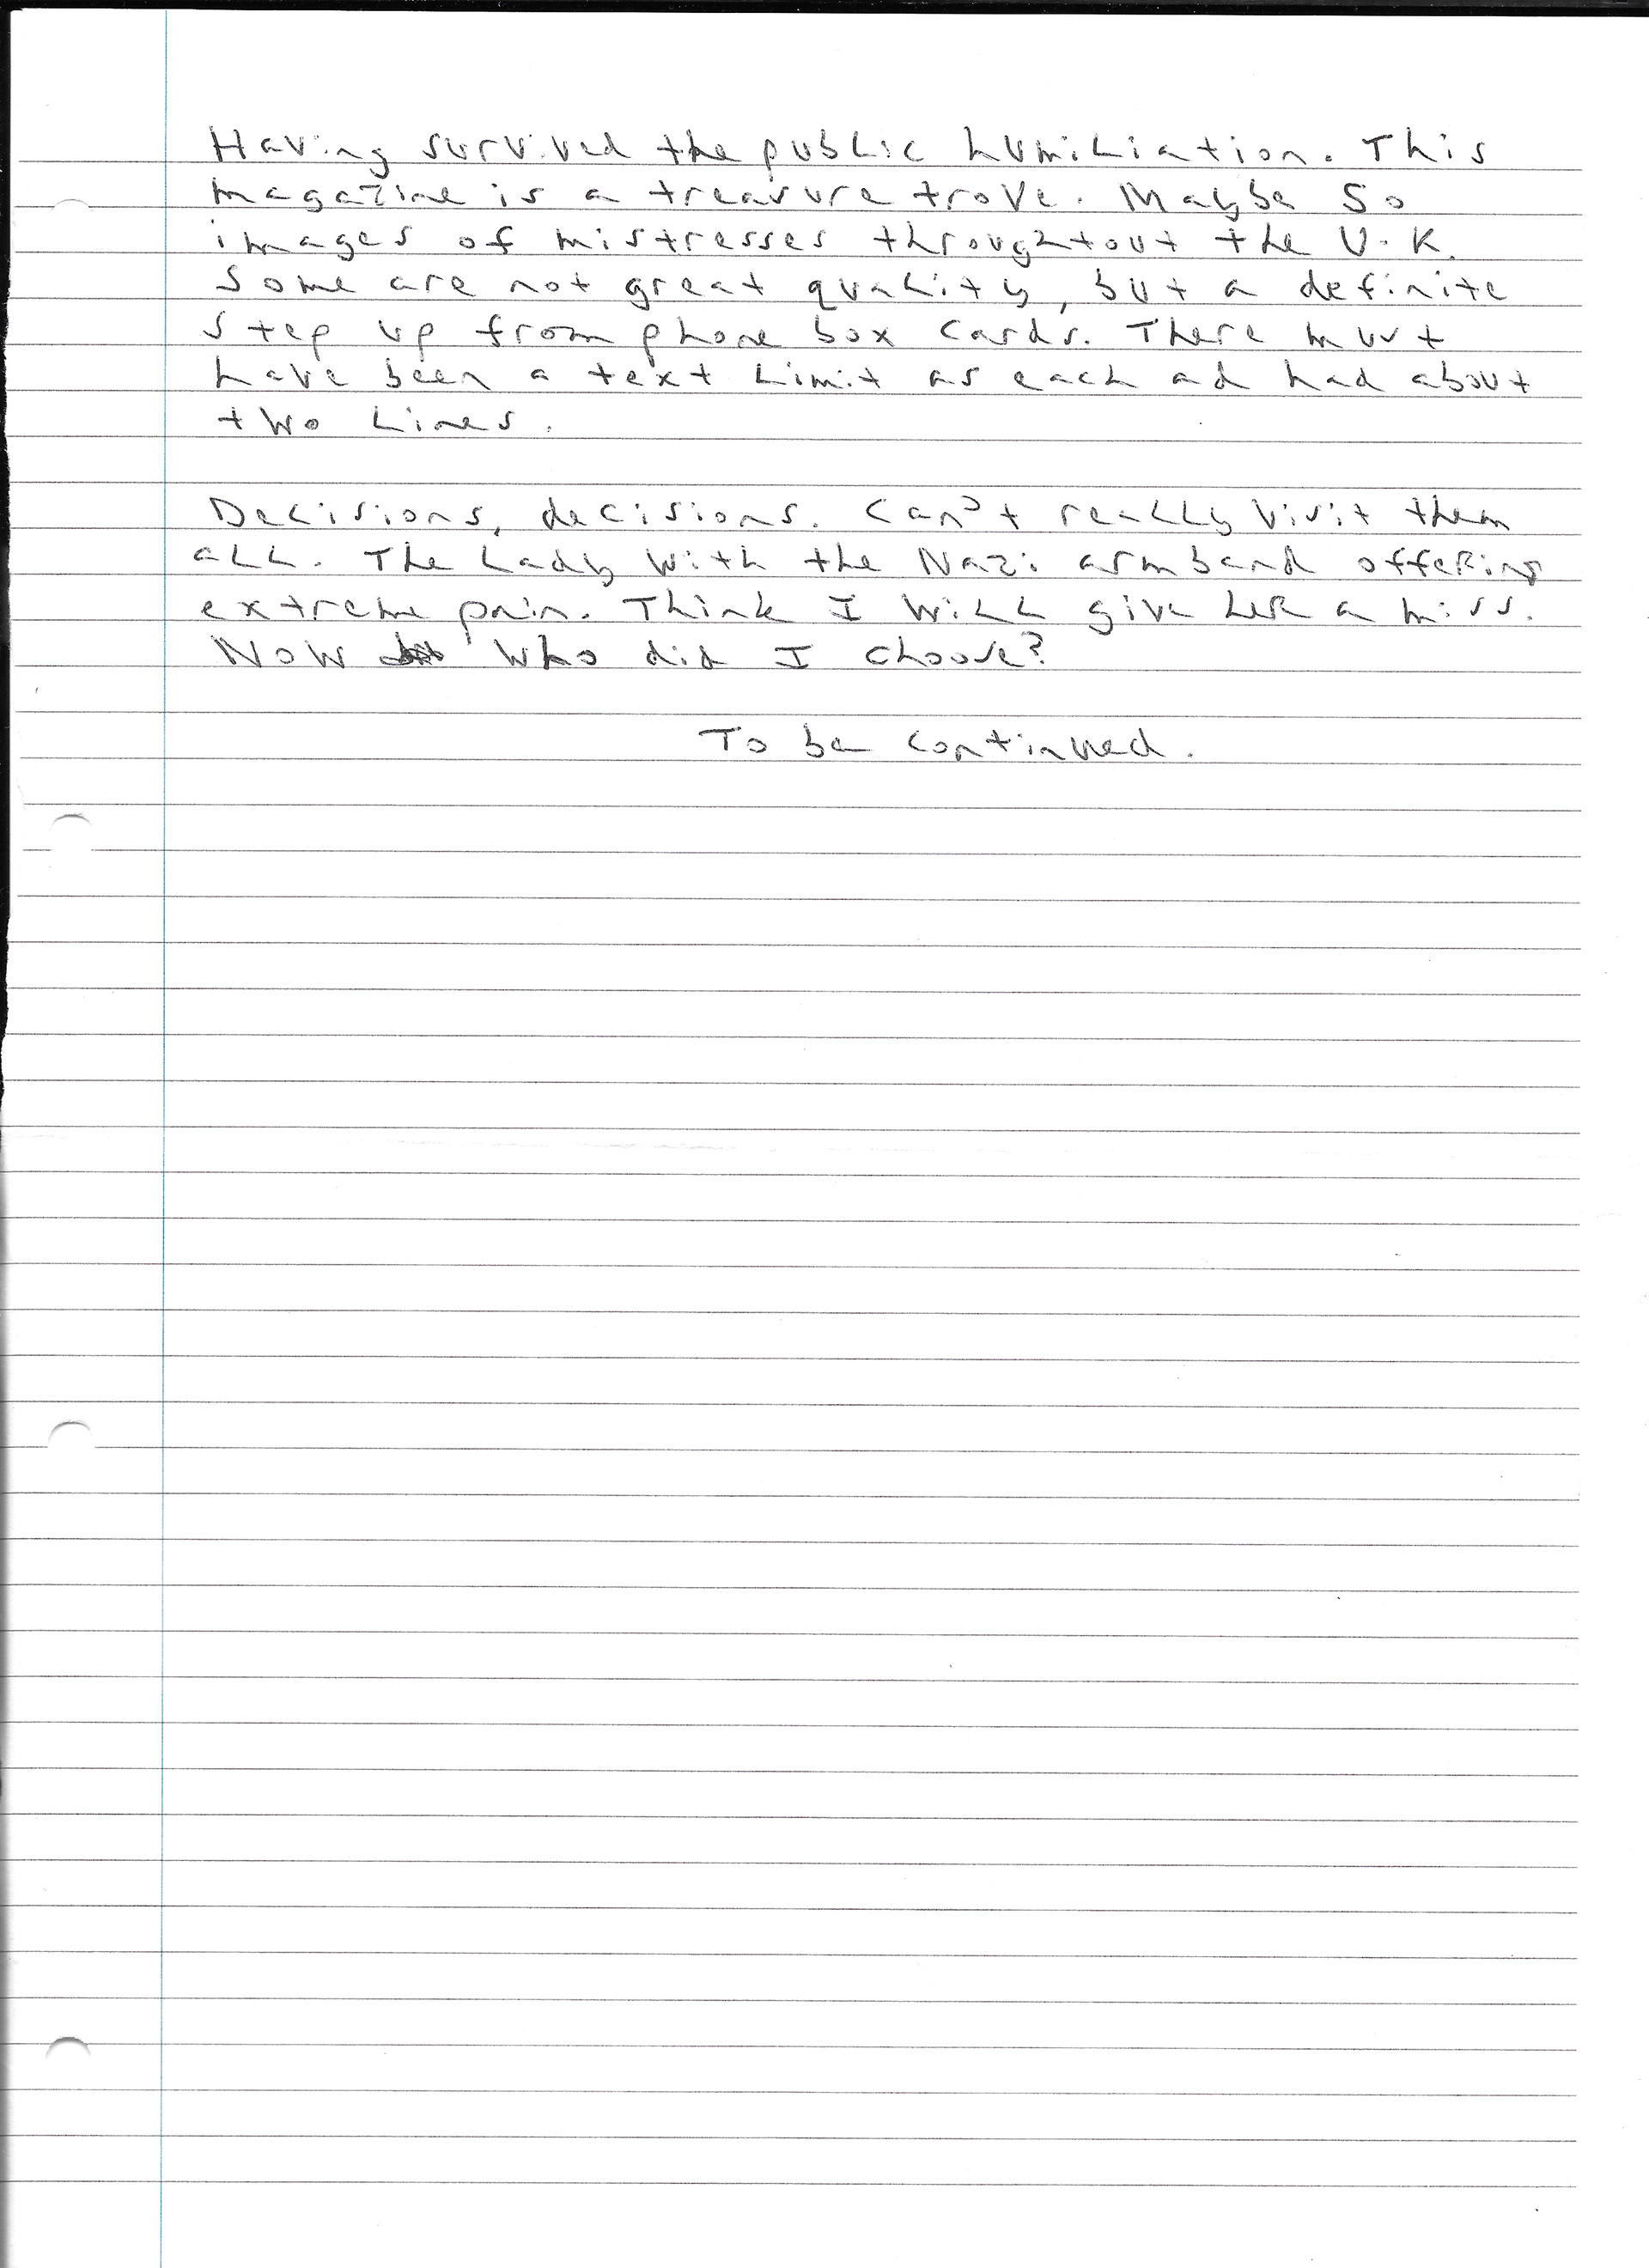 Having survived the public humiliation. This
magazine is a treasure trove. Maybe 50
images of mistresses throughtout the U.K.
Some are not great quality, but a definite
step up from phone box cards. There must
have been a text limit as each ad had about
two lines.
Decisions, decisions. Can't really visit them
all. The Lady with the Nazi armband offering
extreme pain. Think I will give her a miss.
Now who did I choose?
To be continued.